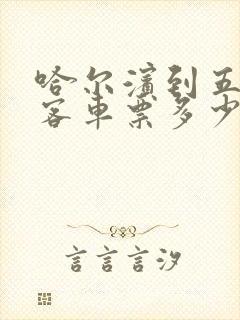 哈尔滨到五
客车票多少
言言言汐